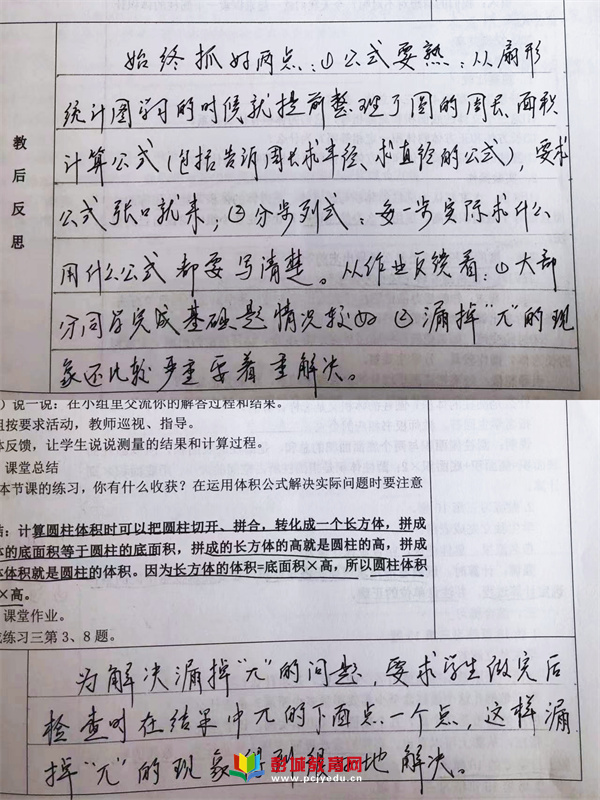 始终抓好两点:①公式要熟:从扇形
教后反思
统计图学习的时候就提前整理了圆的周长、面积
计算公式(包括告诉周长求半径、求直径的公式),要求
公式张口就来;②分步列式:每一步实际求什么
用什么公式都要写清楚。从作业反馈看:①大部
分同学完成基础题情况较好 ②漏掉“π”的现
象还比较严重要着重解决。
)说一说:在小组里交流你的解答过程和结果。
组按要求活动,教师巡视、指导。
体反馈,让学生说说测量的结果和计算过程。
课堂总结
本节课的练习,你有什么收获?在运用体积公式解决实际问题时要注意
结:计算圆柱体积时可以把圆柱切开、拼合,转化成一个长方体,拼成
体的底面积等于圆柱的底面积,拼成的长方体的高就是圆柱的高,拼成
体体积就是圆柱的体积。因为长方体的体积=底面积×高,所以圆柱体积
×高。
课堂作业。
成练习三第3、8题。
为解决漏掉“π”的问题,要求学生做完后
检查时在结果中π的下面点一个点,这样漏
掉“π”的现象得到很好地解决。
彭城教育网
www.pcjyedu.cn